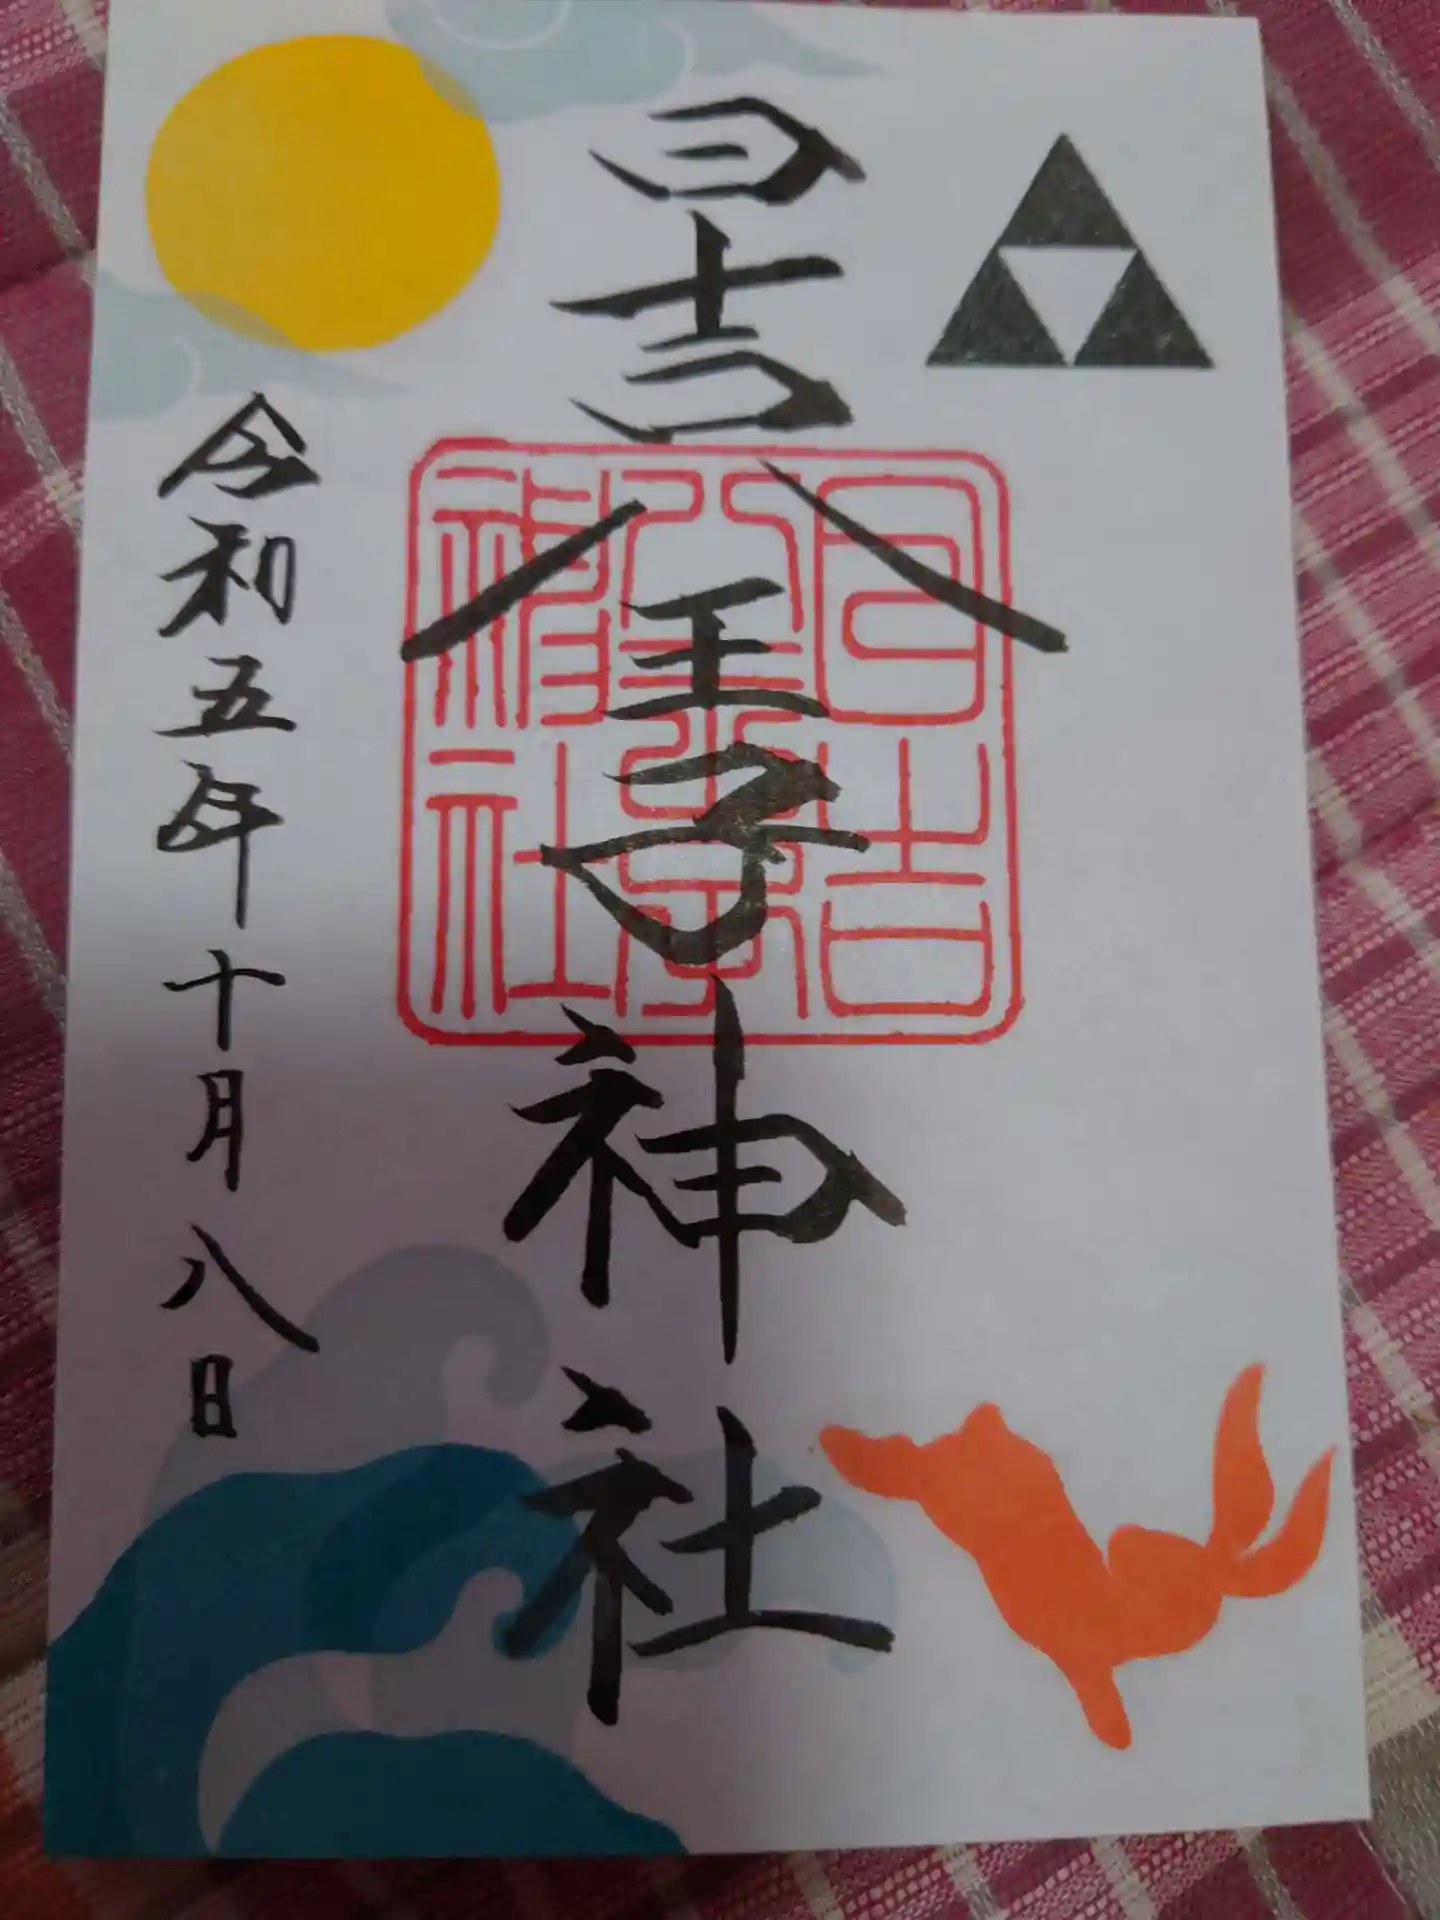 日吉八王子神社
日吉八王子神社
令和五年十月八日